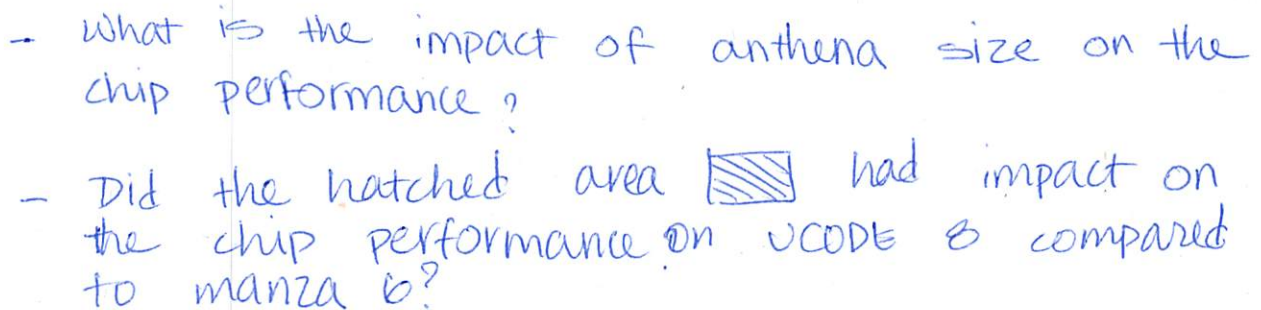 - What is the impact of anthena size on the
chip performance?
- Did the hatched area had impact on
the chip performance on UCODE 8 compared
to manza 6?